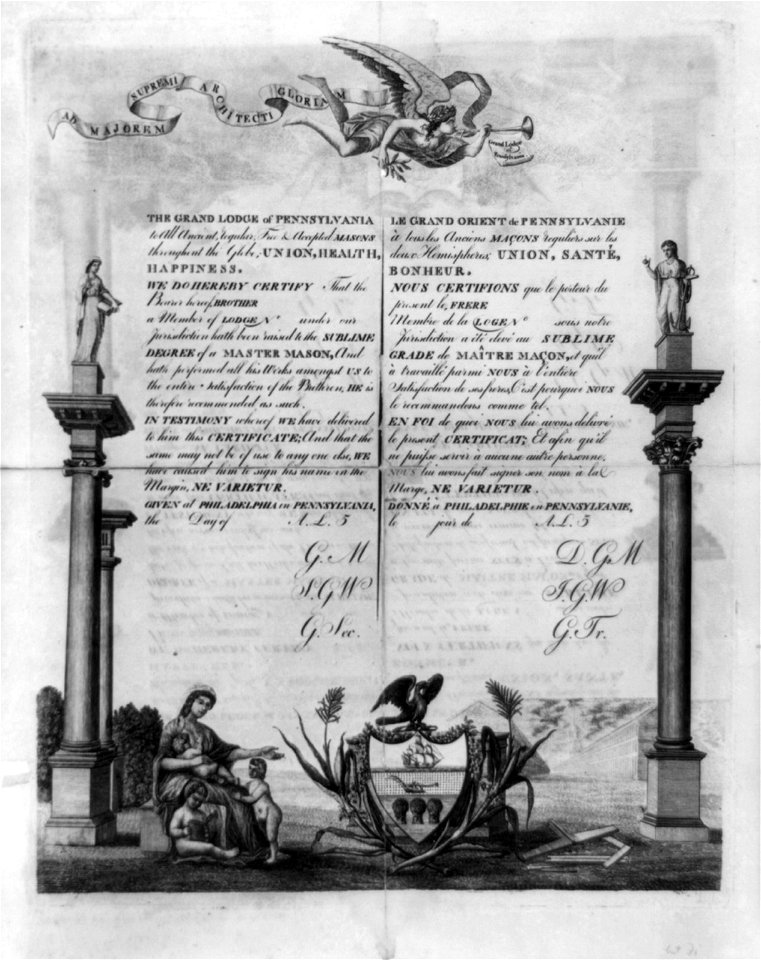 AD MAJOREM SUPREMI ARCHITECTI GLORIAM
Grand Lodge
of
Pennsylvania
THE GRAND LODGE of PENNSYLVANIA
to All Ancient, regular, Free & Accepted MASONS
throughout the Globe, UNION, HEALTH,
HAPPINESS.
WE DO HEREBY CERTIFY That the
Bearer hereof, BROTHER
a Member of LODGE No under our
Jurisdiction hath been raised to the SUBLIME
DEGREE of a MASTER MASON, And
hath performed all his Works amongst US to
the entire Satisfaction of the Brethren, HE is
therefore recommended as such.
IN TESTIMONY whereof WE have delivered
to him this CERTIFICATE; And that the
same may not be of use to any one else, WE
have caused him to sign his name in the
Margin, NE VARIETUR.
GIVEN at PHILADELPHIA in PENNSYLVANIA,
the Day of A. L. 5
G. M
S. G W
G. Sec.
LE GRAND ORIENT de PENNSYLVANIE
à tous les Anciens MAÇONS reguliers sur les
deux Hemispheres, UNION, SANTÉ,
BONHEUR.
NOUS CERTIFIONS que le porteur du
present le, FRERE
Membre de la LOGE No sous notre
Jurisdiction a été elevé au SUBLIME
GRADE de MAÎTRE MAÇON, et qu'il
à travaillé parmi NOUS à l'entière
Satisfaction de ses freres, C'est pourquoi NOUS
le recommandons comme tel.
EN FOI de quoi NOUS lui avons delivré
le present CERTIFICAT; Et afin qu'il
ne puisse servir à aucune autre personne,
NOUS lui avons fait signer son nom à la
Marge, NE VARIETUR.
DONNÉ à PHILADELPHIE en PENNSYLVANIE,
le jour de A. L. 5
D. G M
J. G. W
G. Tr.